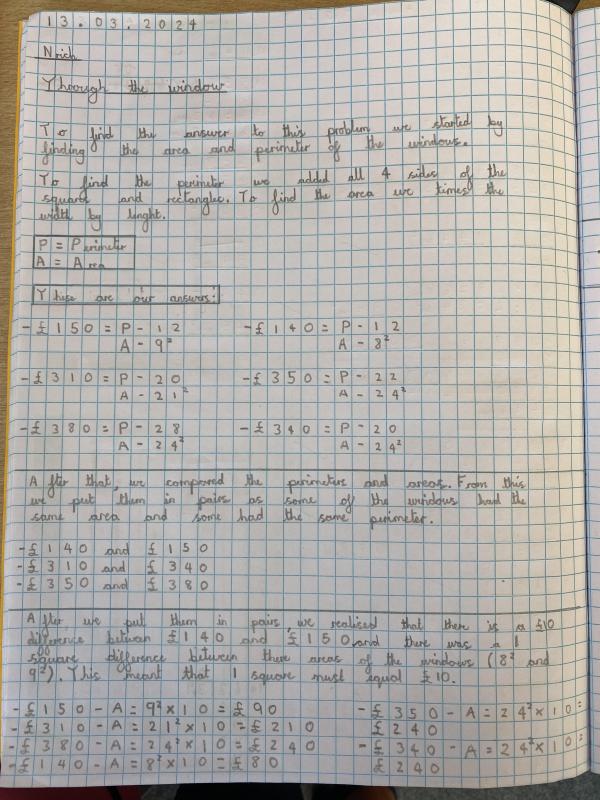 13.03.2024
Nrich
Through the window
To find the answer to this problem we started by
finding the area and perimeter of the windows.
To find the perimeter we added all 4 sides of the
square and rectangles. To find the area we times the
width by lenght.
P = Perimeter
A = Area
These are our answers:
-£150 = P - 12
A - 9²
-£140 = P - 12
A - 8²
-£310 = P - 20
A - 21²
-£350 = P - 22
A - 24²
-£380 = P - 28
A - 24²
-£340 = P - 20
A - 24²
After that, we compared the perimeters and areas. From this
we put them in pairs as some of the windows had the
same area and some had the same perimeter.
-£140 and £150
-£310 and £340
-£350 and £380
After we put them in pairs, we realised that there is a £10
difference between £140 and £150 and there was a 1
square difference between there areas of the windows (8² and
9²). This meant that 1 square must equal £10.
-£150 - A = 9² x 10 = £90
-£310 - A = 21² x 10 = £210
-£380 - A = 24² x 10 = £240
-£140 - A = 8² x 10 = £80
-£350 - A = 24² x 10 =
£240
-£340 - A = 24² x 10 =
£240